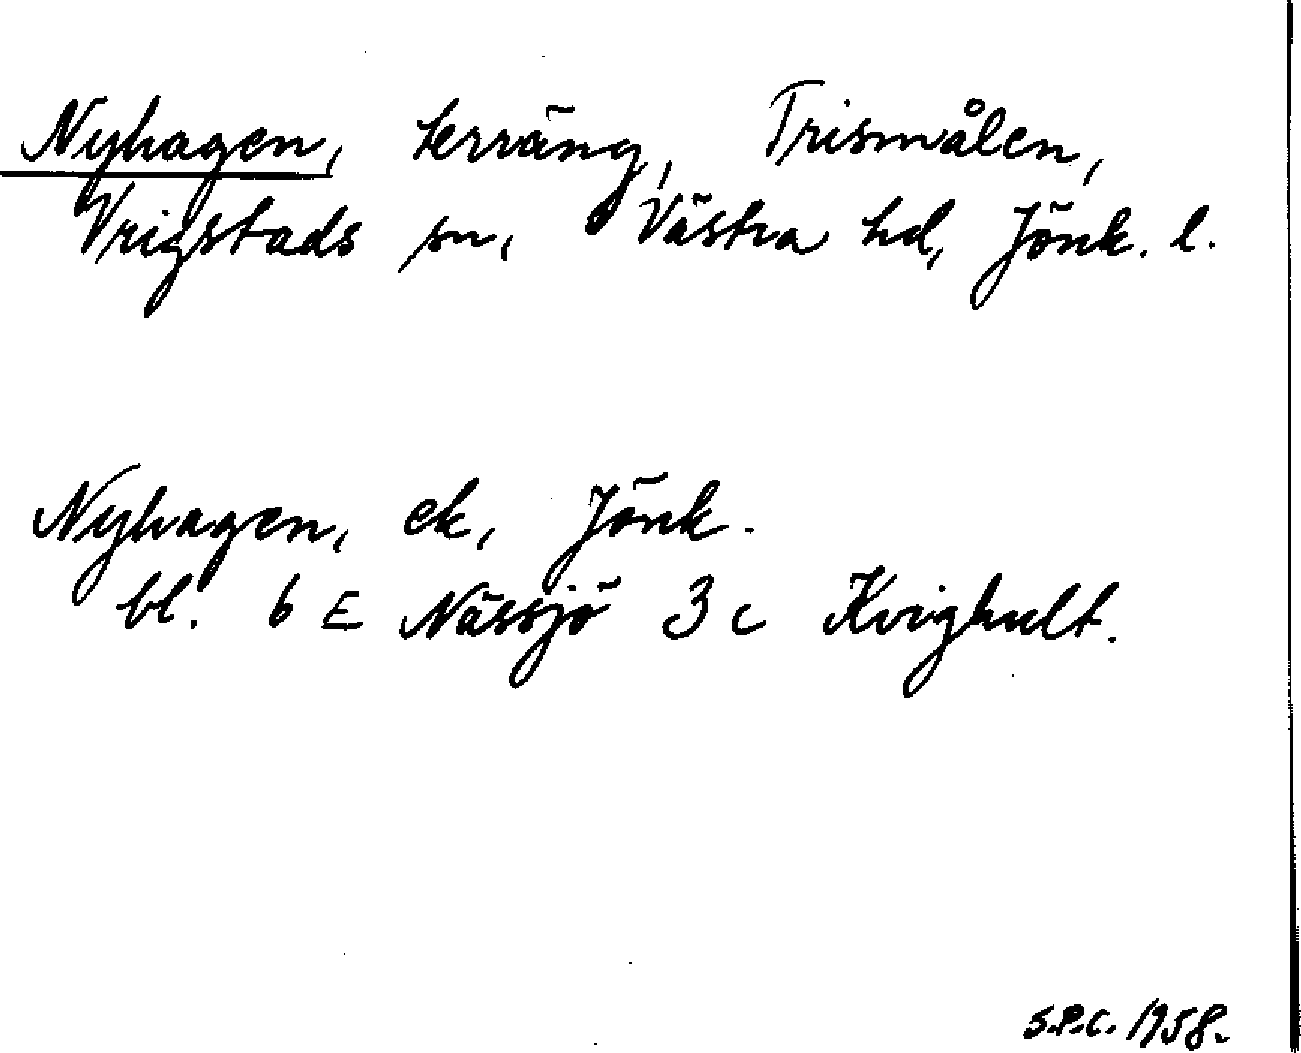 Nyhagen, terräng, Trismålen,
Vrigstads sn, Västra hd, Jönk. l.
Nyhagen, ek, Jönk.
bl. 6 E Nässjö 3 c Kvighult.
S.P.C. 1958.